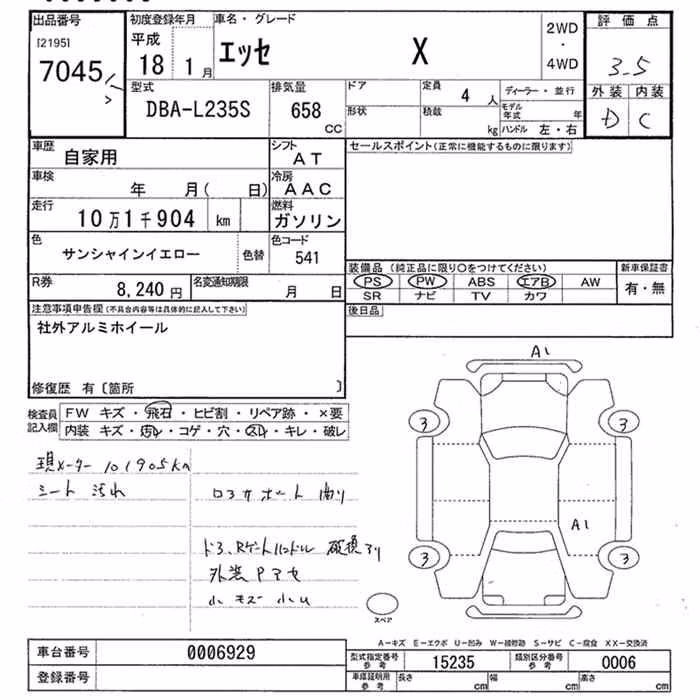 出品番号
[2195]
7045
初度登録年月
平成
18 1月
車名・グレード
エッセ X
2WD
・
4WD
評価点
3.5
外装 内装
D C
型式
DBA-L235S
排気量
658
CC
ドア
形状
定員
4 人
積載
kg
ディーラー・並行
モデル年式 年
ハンドル 左・右
車歴
自家用
シフト
AT
車検
年 月( 日)
冷房
AAC
走行
10万1千904 km
燃料
ガソリン
色
サンシャインイエロー
色替
色コード
541
R券
8,240円
名変通知期限
月 日
セールスポイント(正常に機能するものに限ります)
装備品 (純正品に限り〇をつけてください)
PS PW ABS エアB AW
SR ナビ TV カワ
新車保証書
有・無
後日品
注意事項申告欄(不具合内容等は具体的に記入して下さい)
社外アルミホイール
修復歴 有〔箇所 〕
検査員記入欄
FW キズ・飛石・ヒビ割・リペア跡・×要
内装 キズ・汚れ・コゲ・穴・スレ・キレ・破レ
現メーター 101905km
シート 汚れ
ロアサポート 曲り
ドア、Rゲートハンドル 破損アリ
外装Pアセ
A1
3
3
A1
3
3
スペア
A-キズ E-エクボ U-凹み W-補修跡 S-サビ C-腐食 XX-交換済
車台番号
0006929
登録番号
型式指定番号
参考
15235
類別区分番号
参考
0006
車庫証明用
参考
長さ cm
幅 cm
高さ cm